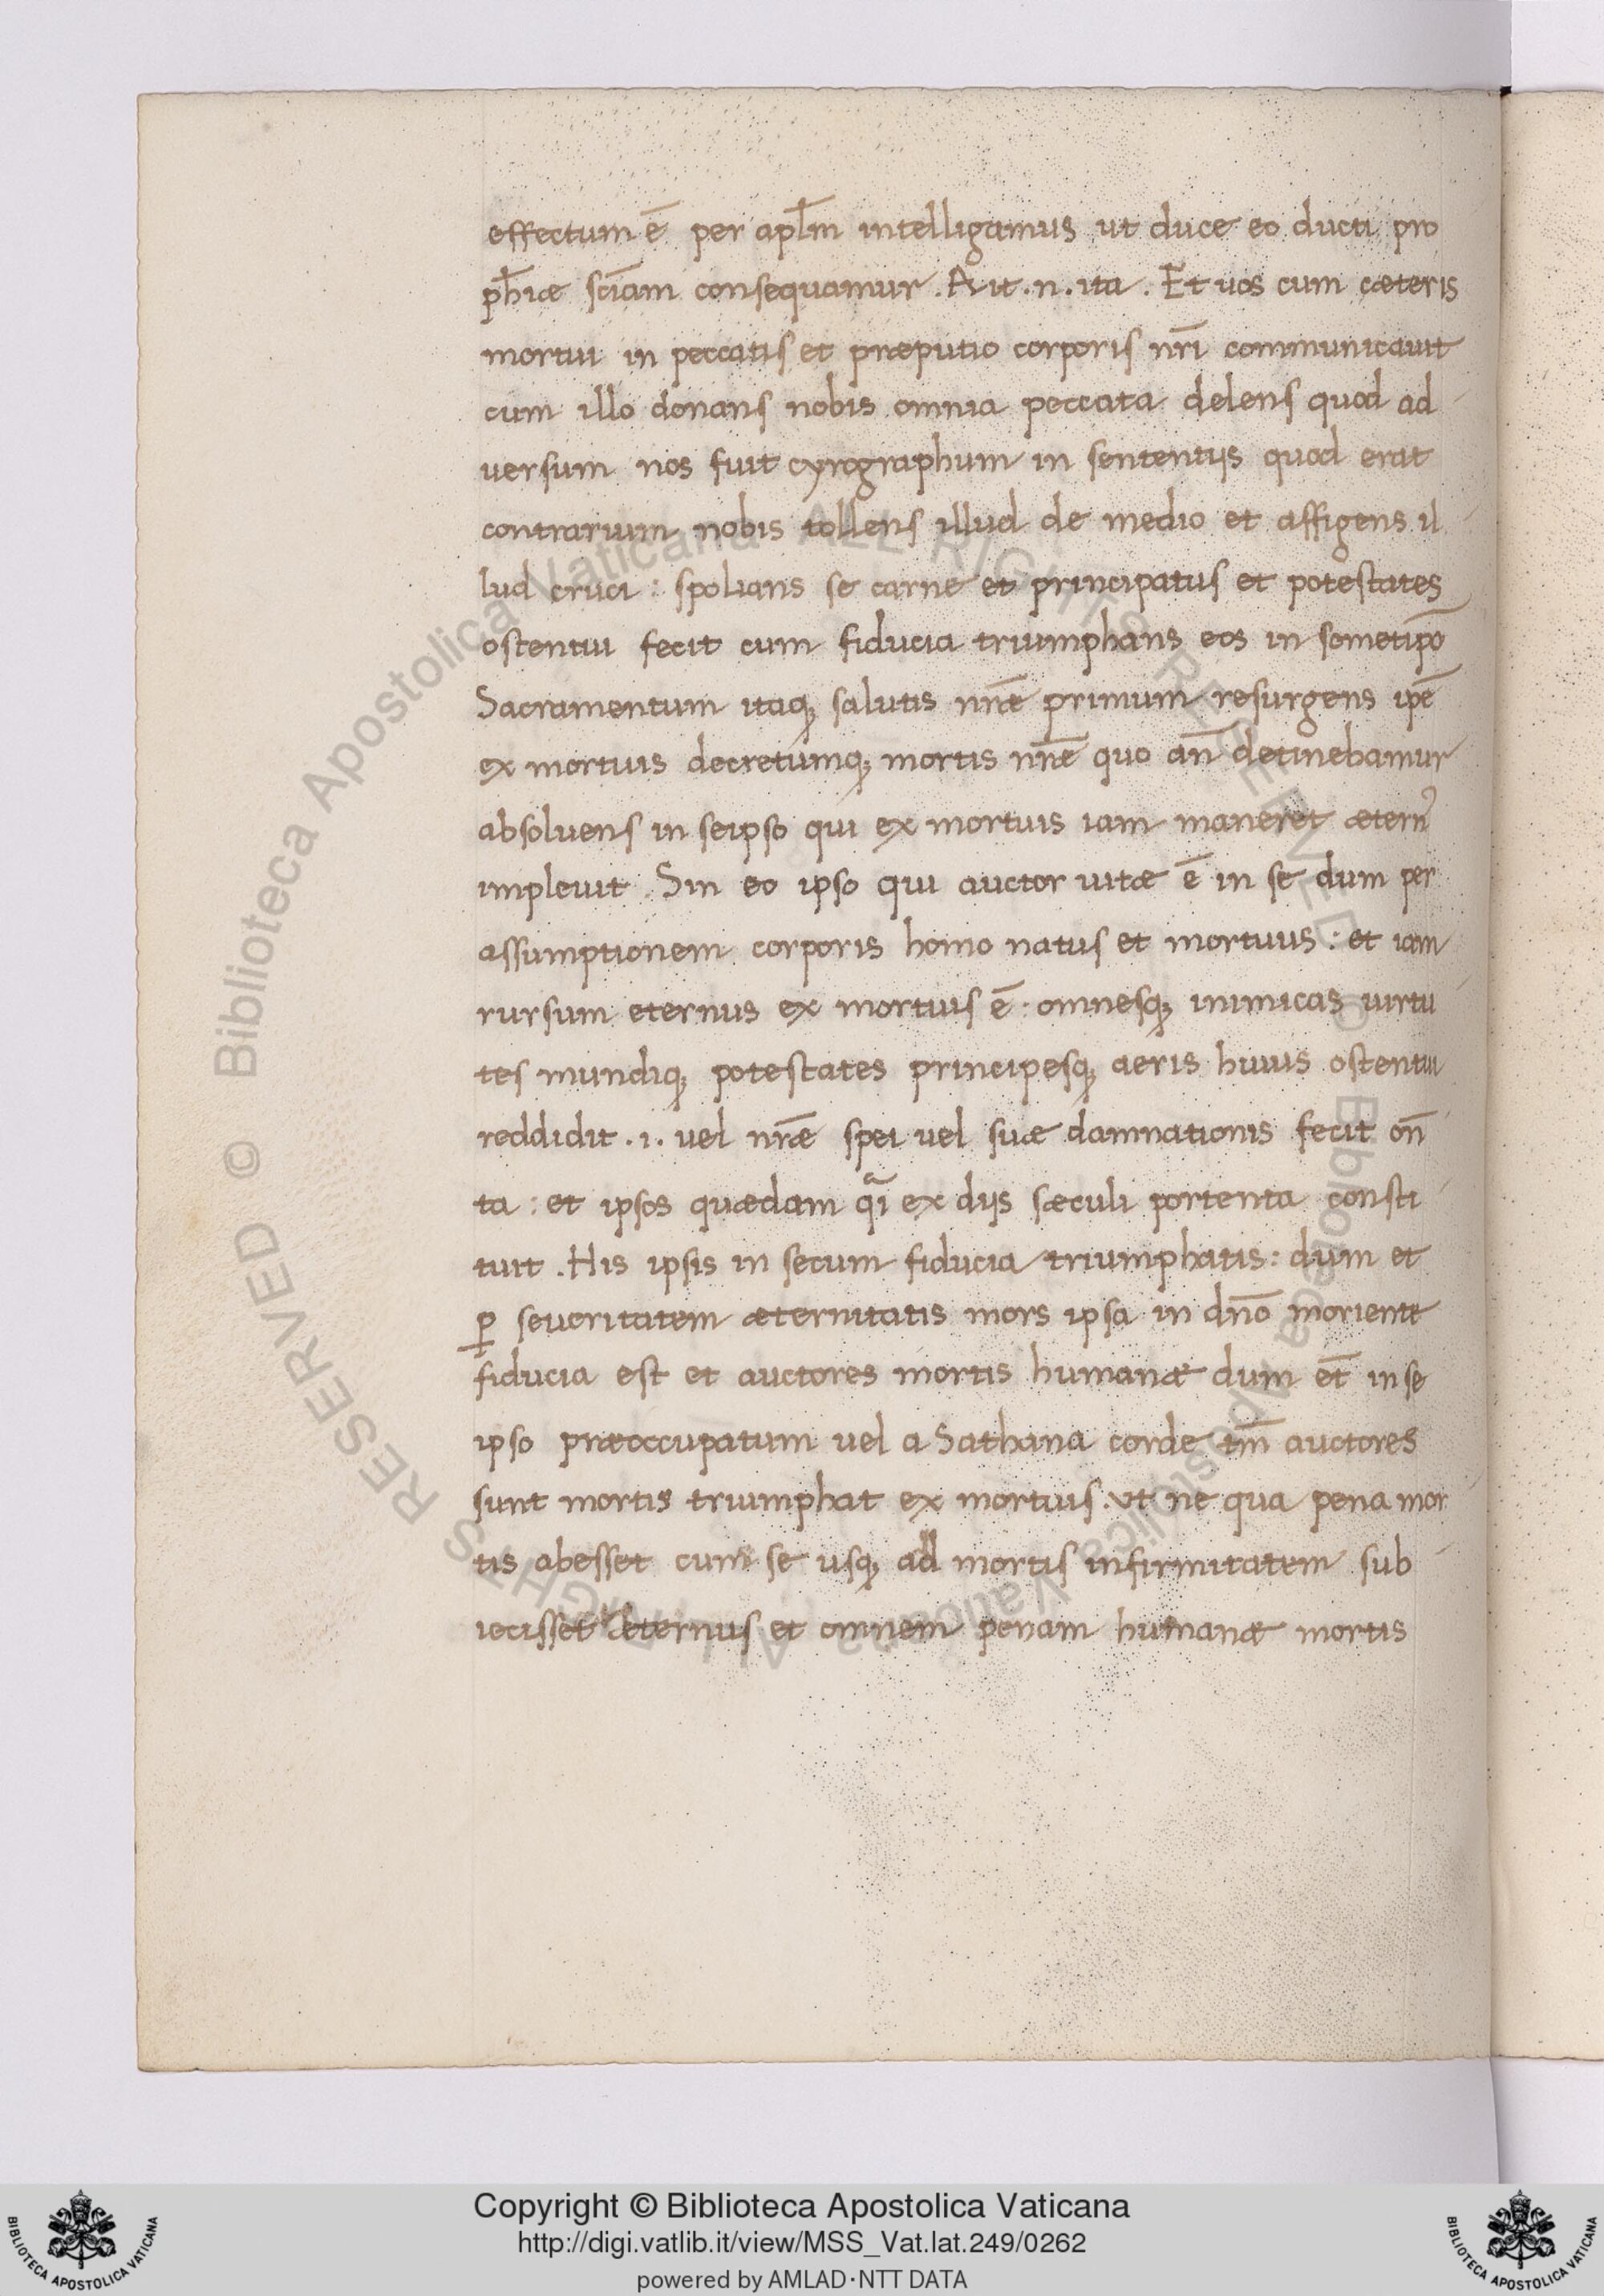 effectum ē per apl̄m intelligamus ut duce eo ducti pro
ph̄iæ sciām consequamur. Ait .n. ita. Et uos cum cæteris
mortui in peccatis et præputio corporis nr̄i communicauit
cum illo donans nobis omnia peccata delens quod ad
uersum nos fuit cyrographum in sententijs quod erat
contrarium nobis tollens illud de medio et affigens il
lud cruci: spolians se carne et principatus et potestates
ostentui fecit cum fiducia triumphans eos in semetip̄o
Sacramentum itaq; salutis nr̄æ primum resurgens ip̄e
ex mortuis decretumq; mortis nr̄e quo an̄ detinebamur
absoluens in seipso qui ex mortuis iam maneret ætern᾽
impleuit. Sin eo ipso qui auctor uitæ ē in se dum per
assumptionem corporis homo natus et mortuus: et iam
rursum eternus ex mortuis ē: omnesq; inimicas uirtu
tes mundiq; potestates principesq; aeris huius ostentui
reddidit .i. uel nr̄æ spei uel suæ damnationis fecit on̄
ta: et ipsos quædam q̄i ex dijs sæculi portenta consti
tuit. His ipsis in secum fiducia triumphatis: dum et
ꝑ seueritatem æternitatis mors ipsa in dn̄o moriente
fiducia est et auctores mortis humanæ dum et̄ in se
ipso præoccupatum uel a Sathana corde tm̄ auctores
sunt mortis triumphat ex mortuis. ut ne qua pena mor
tis abesset cum se usq; ad mortis infirmitatem sub
iecisset æternus et omnem penam humanæ mortis
Copyright © Biblioteca Apostolica Vaticana
http://digi.vatlib.it/view/MSS_Vat.lat.249/0262
powered by AMLAD·NTT DATA
BIBLIOTECA APOSTOLICA VATICANA
BIBLIOTECA APOSTOLICA VATICANA
© Biblioteca Apostolica Vaticana ALL RIGHTS RESERVED
© Biblioteca Apostolica Vaticana ALL RIGHTS RESERVED